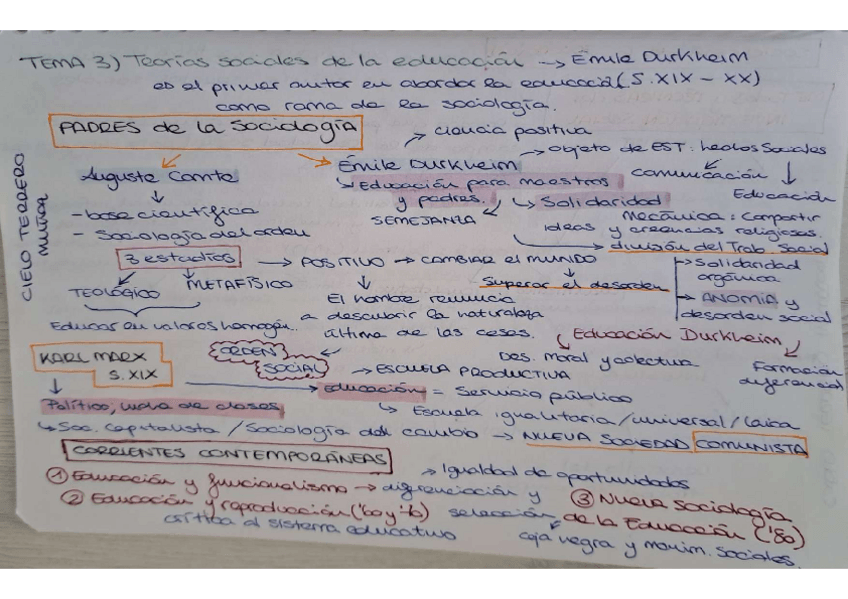 TEMA 3) Teorías sociales de la educación → Émile Durkheim
es el primer autor en abordar la educació (S. XIX - XX)
como rama de la sociología.
PADRES de la SociologÍA
CIELO TERRERO
MUÑOZ
Auguste Comte
↓
- base científica
- Sociología del orden
3 estadios → POSITIVO → CAMBIAR EL MUNDO
TEOLÓGICO
METAFÍSICO
Educar en valores homogén.
El hombre renuncia
a descubrir la naturaleza
última de las cosas.
Superar el desorden
ORDEN
SOCIAL
Émile Durkheim
→ ciencia positiva
→ objeto de EST: hechos Sociales
comunicación
Educación
Educación para maestros
y padres.
SEMEJANZA
Solidaridad
Mecánica: compartir
ideas y creencias religiosas.
división del Trab. Social
→ Solidaridad
orgánica
→ ANOMIA y
desorden social
Educación Durkheim
Des. moral y colectiva
Formación
diferencial
KARL MARX
S. XIX
Político, lucha de clases
→ Soc. Capitalista / Sociología del cambio → NUEVA SOCIEDAD COMUNISTA
→ ESCUELA PRODUCTIVA
Educación = Servicio público
→ Escuela igualitaria/universal/laica
CORRIENTES CONTEMPORÁNEAS
① Educación y funcionalismo → diferenciación y
selección
→ Igualdad de oportunidades
② Educación y reproducción
crítica al sistema educativo
③ Nueva Sociología
de la Educación ('80)
caja negra y movim. sociales.